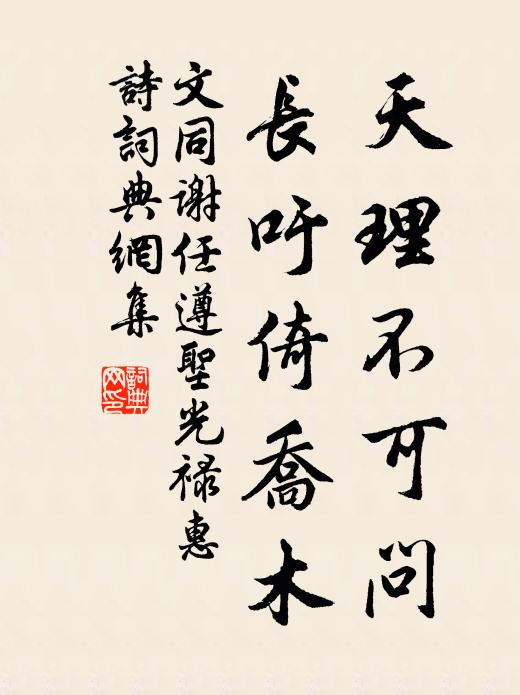 天理不可問
長吁倚喬木
文同謝任遵聖光祿惠
詩詞典網集
詞典
网印